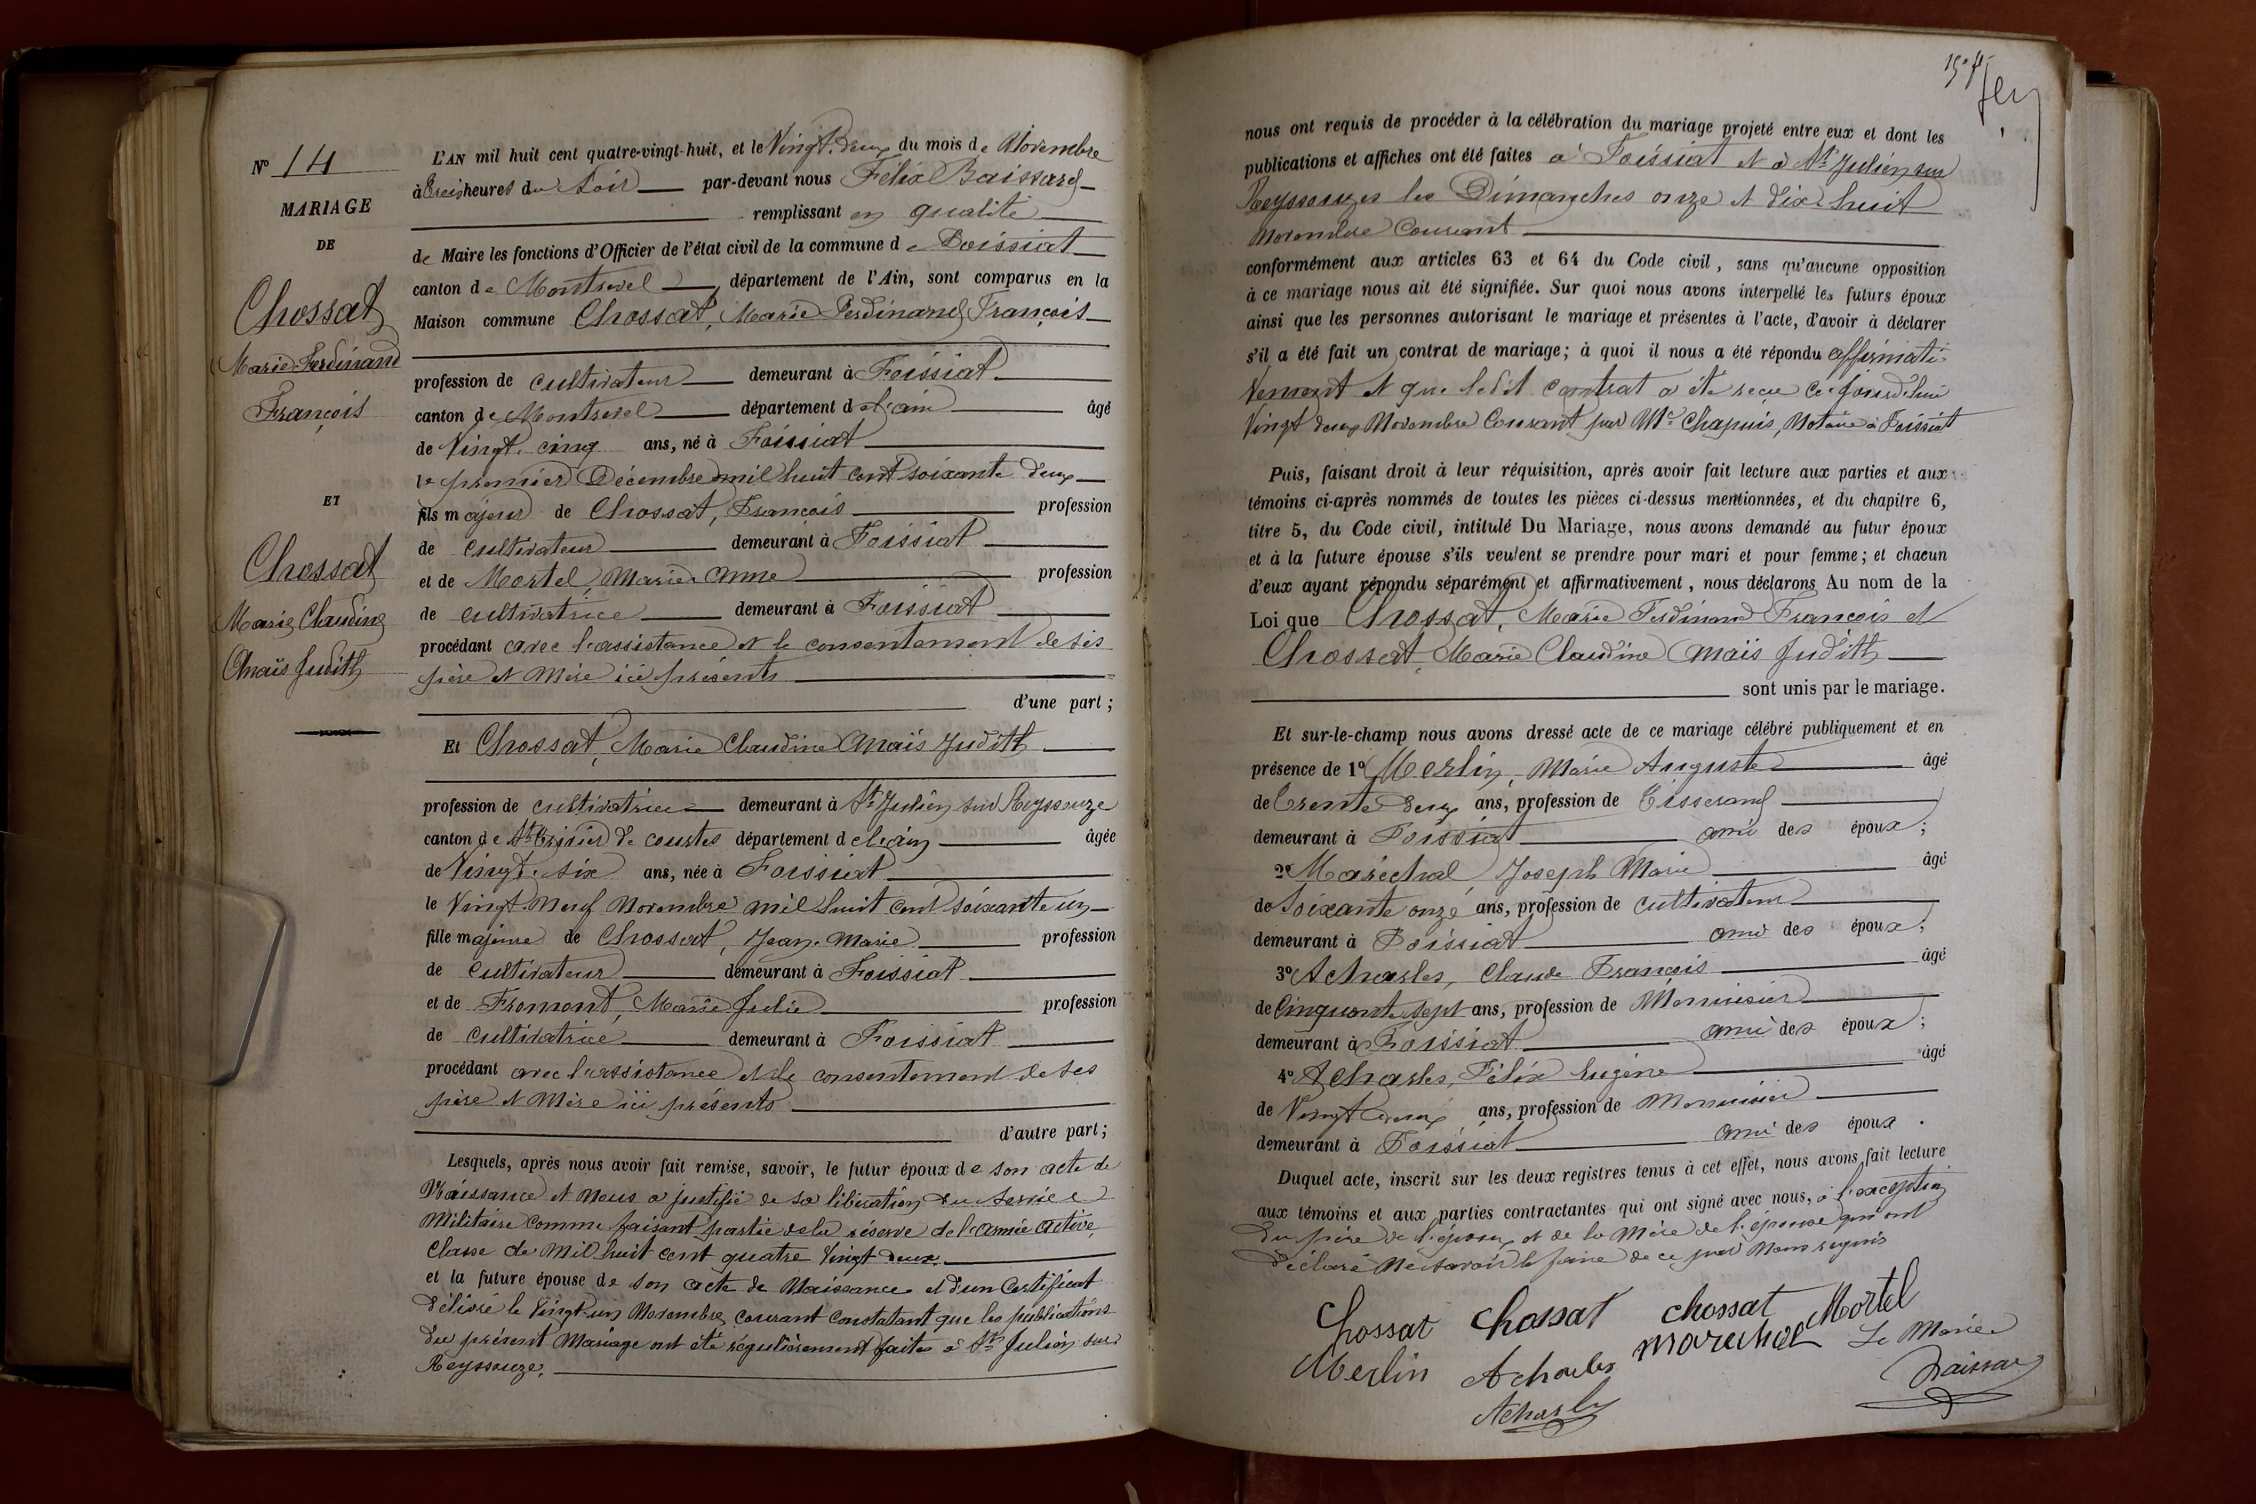 N° 14
MARIAGE
DE
Chossat
Marie Ferdinand
François
ET
Chossat
Marie Claudine
Anaïs Judith
L'AN mil huit cent quatre-vingt-huit, et le Vingt-deux du mois de Novembre
à trois heures du Soir par-devant nous Félix Baissard
remplissant en qualité
de Maire les fonctions d'Officier de l'état civil de la commune de Foissiat
canton de Montrevel département de l'Ain, sont comparus en la
Maison commune Chossat, Marie Ferdinand François
profession de cultivateur demeurant à Foissiat
canton de Montrevel département de l'ain âgé
de Vingt-cinq ans, né à Foissiat
le premier Décembre mil huit cent soixante deux
fils majeur de Chossat, François profession
de cultivateur demeurant à Foissiat
et de Mortel, Marie-Anne profession
de cultivatrice demeurant à Foissiat
procédant avec l'assistance et le consentement de ses
père et Mère ici présents
d'une part ;
Et Chossat, Marie Claudine Anaïs Judith
profession de cultivatrice demeurant à St Julien sur Reyssouze
canton de St Trivier de courtes département de l'ain âgée
de Vingt-six ans, née à Foissiat
le Vingt-Neuf Novembre mil huit cent soixante un
fille majeure de Chossat, Jean-Marie profession
de cultivateur demeurant à Foissiat
et de Fromont, Marie Julie profession
de cultivatrice demeurant à Foissiat
procédant avec l'assistance et le consentement de ses
père et Mère ici présents
d'autre part ;
Lesquels, après nous avoir fait remise, savoir, le futur époux de son acte de
Naissance et Nous a justifié de sa libération du service
Militaire comme faisant partie de la réserve de l'armée active,
Classe de Mil huit cent quatre Vingt deux.
et la future épouse de son acte de Naissance et d'un Certificat
délivré le Vingt-un Novembre courant constatant que les publications
du présent Mariage ont été régulièrement faites à St Julien sur
Reyssouze.
nous ont requis de procéder à la célébration du mariage projeté entre eux et dont les
publications et affiches ont été faites à Foissiat et à St Julien sur
Reyssouze les Dimanches onze et dix-huit
Novembre Courant
conformément aux articles 63 et 64 du Code civil, sans qu'aucune opposition
à ce mariage nous ait été signifiée. Sur quoi nous avons interpellé les futurs époux
ainsi que les personnes autorisant le mariage et présentes à l'acte, d'avoir à déclarer
s'il a été fait un contrat de mariage; à quoi il nous a été répondu affirmati-
vement et que ledit contrat a été reçu ce jourd'hui
Vingt deux Novembre Courant par Me Chapuis, Notaire à Foissiat
Puis, faisant droit à leur réquisition, après avoir fait lecture aux parties et aux
témoins ci-après nommés de toutes les pièces ci-dessus mentionnées, et du chapitre 6,
titre 5, du Code civil, intitulé Du Mariage, nous avons demandé au futur époux
et à la future épouse s'ils veulent se prendre pour mari et pour femme; et chacun
d'eux ayant répondu séparément et affirmativement, nous déclarons Au nom de la
Loi que Chossat, Marie Ferdinand François et
Chossat Marie Claudine Anaïs Judith
sont unis par le mariage.
Et sur-le-champ nous avons dressé acte de ce mariage célébré publiquement et en
présence de 1° Merlin, Marie Auguste âgé
de trente deux ans, profession de Tisserand
demeurant à Foissiat ami des époux ;
2° Maréchal Joseph Marie âgé
de Soixante onze ans, profession de cultivateur
demeurant à Foissiat ami des époux ;
3° Acharles, Claude François âgé
de Cinquante sept ans, profession de Menuisier
demeurant à Foissiat ami des époux ;
4° Acharles, Félix Eugène âgé
de Vingt deux ans, profession de Menuisier
demeurant à Foissiat ami des époux .
Duquel acte, inscrit sur les deux registres tenus à cet effet, nous avons fait lecture
aux témoins et aux parties contractantes qui ont signé avec nous, à l'exception
du père de l'époux et de la Mère de l'épouse qui ont
déclaré Ne savoir le faire de ce par Nous requis
Chossat Chossat chossat Mortel
Merlin Acharles marechal Le Maire
Acharles Baissard